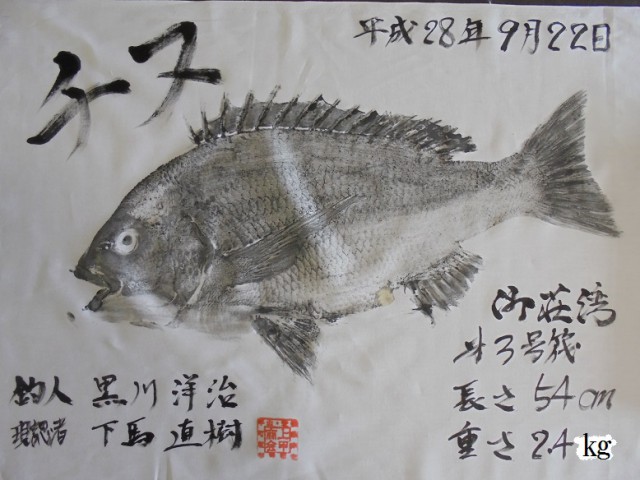 チヌ
平成28年9月22日
御荘湾
3号筏
長さ54cm
重さ2.4kg
釣人 黒川 洋治
現認者 下馬 直樹